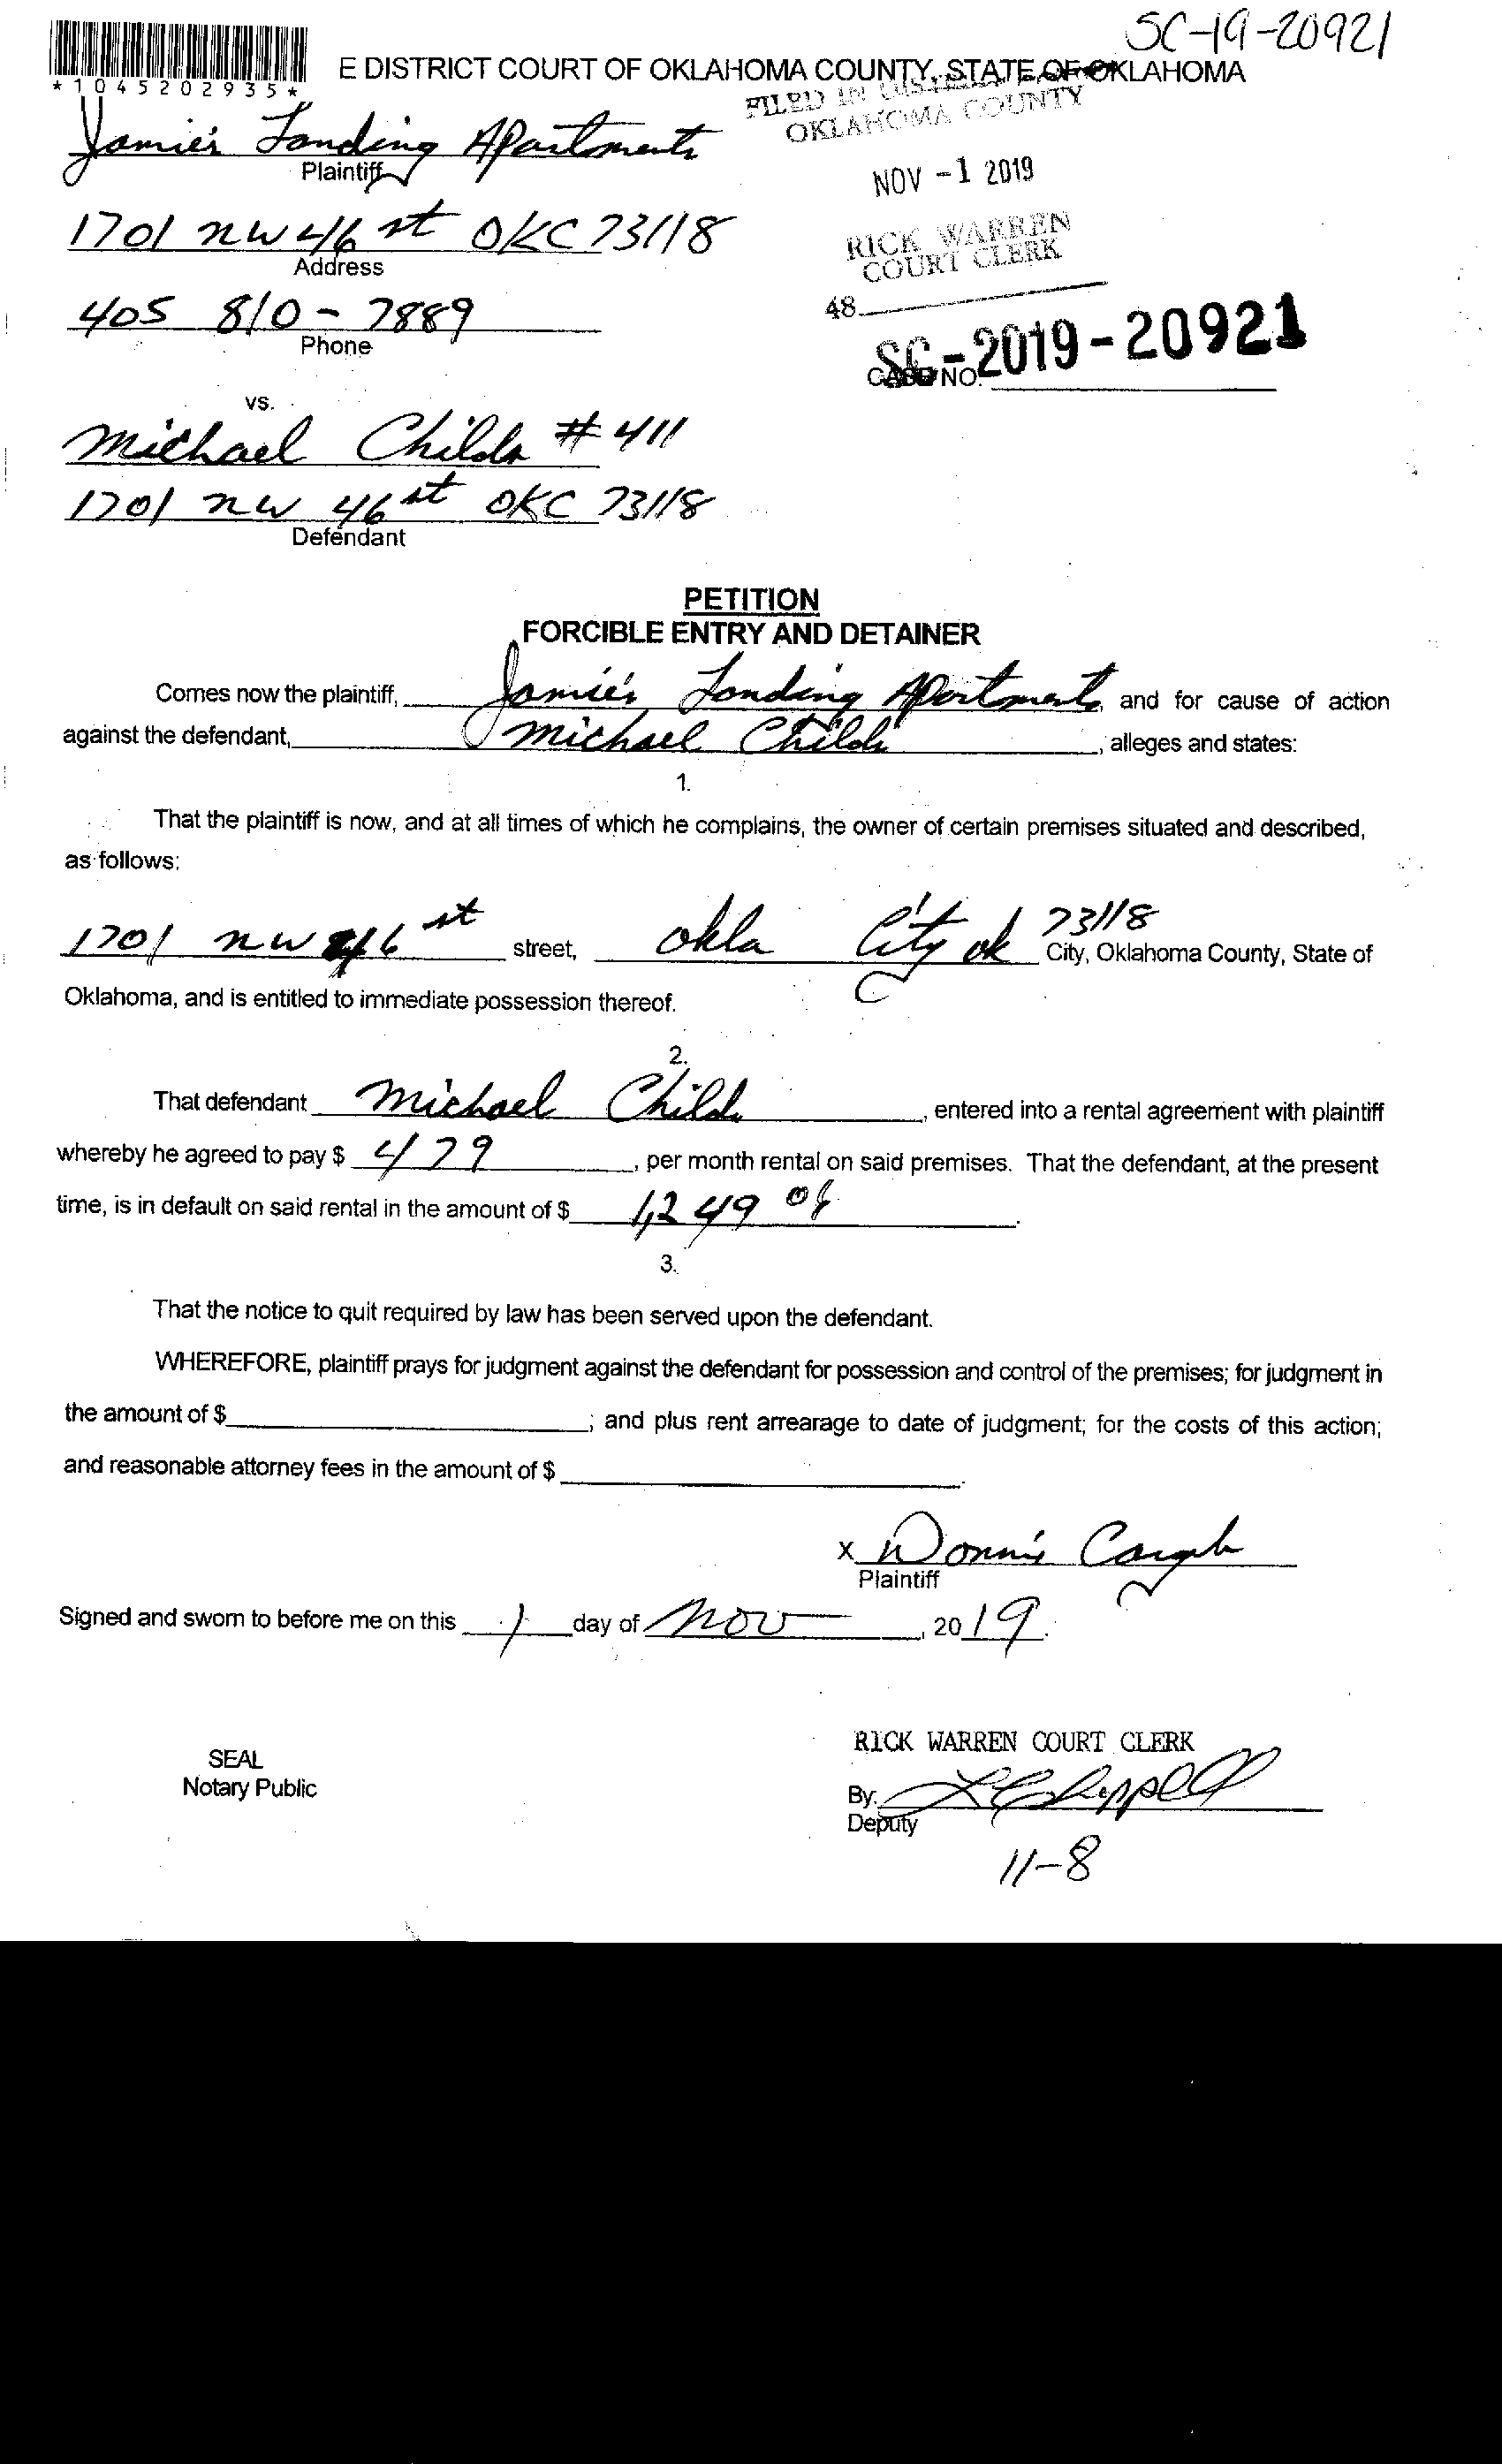 SC-19-20921
*1045202935*
E DISTRICT COURT OF OKLAHOMA COUNTY, STATE OF OKLAHOMA
FILED IN DISTRICT
OKLAHOMA COUNTY
Jamie's Landing Apartments
Plaintiff
NOV -1 2019
1701 NW 46 st OKC 73118
Address
RICK WARREN
COURT CLERK
405 810-7889
Phone
48
SC-2019-20921
CASE NO.
vs.
Michael Childs #411
1701 NW 46 st OKC 73118
Defendant
PETITION
FORCIBLE ENTRY AND DETAINER
Comes now the plaintiff, Jamie's Landing Apartments, and for cause of action
against the defendant, Michael Childs, alleges and states:
1.
That the plaintiff is now, and at all times of which he complains, the owner of certain premises situated and described,
as follows:
1701 NW 46 st street, Okla City ok 73118 City, Oklahoma County, State of
Oklahoma, and is entitled to immediate possession thereof.
2.
That defendant Michael Childs, entered into a rental agreement with plaintiff
whereby he agreed to pay $ 479, per month rental on said premises. That the defendant, at the present
time, is in default on said rental in the amount of $ 1,249.
3.
That the notice to quit required by law has been served upon the defendant.
WHEREFORE, plaintiff prays for judgment against the defendant for possession and control of the premises; for judgment in
the amount of $ ; and plus rent arrearage to date of judgment; for the costs of this action;
and reasonable attorney fees in the amount of $ .
X Donnis
Plaintiff
Signed and sworn to before me on this 1 day of Nov, 2019.
RICK WARREN COURT CLERK
SEAL
Notary Public
By:
Deputy
11-8